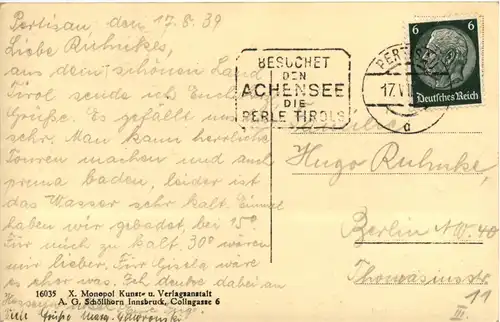 Pertisau, den 17.8.39
Liebe Ruhnkes,
aus dem schönen Land
Tirol sende ich Euch
Grüße. Es gefällt uns
sehr. Man kann herrliche
Touren machen und auch
prima baden, leider ist
das Wasser sehr kalt. Einmal
haben wir gebadet, bei 15°
Für mich zu kalt. 30° wären
mir lieber. Für Gisela wäre
es eher was. Ich denke dabei an
Viele Grüße
16035 X. Monopol Kunst- u. Verlagsanstalt
A. G. Schöllhorn Innsbruck, Collngasse 6
BESUCHET
DEN
ACHENSEE
DIE
PERLE TIROLS
PERTISAU
17.VIII
a
6 6
Deutsches Reich
Familie
Hugo Ruhnke,
Berlin N.W. 40
Thomasiusstr.
11
III.